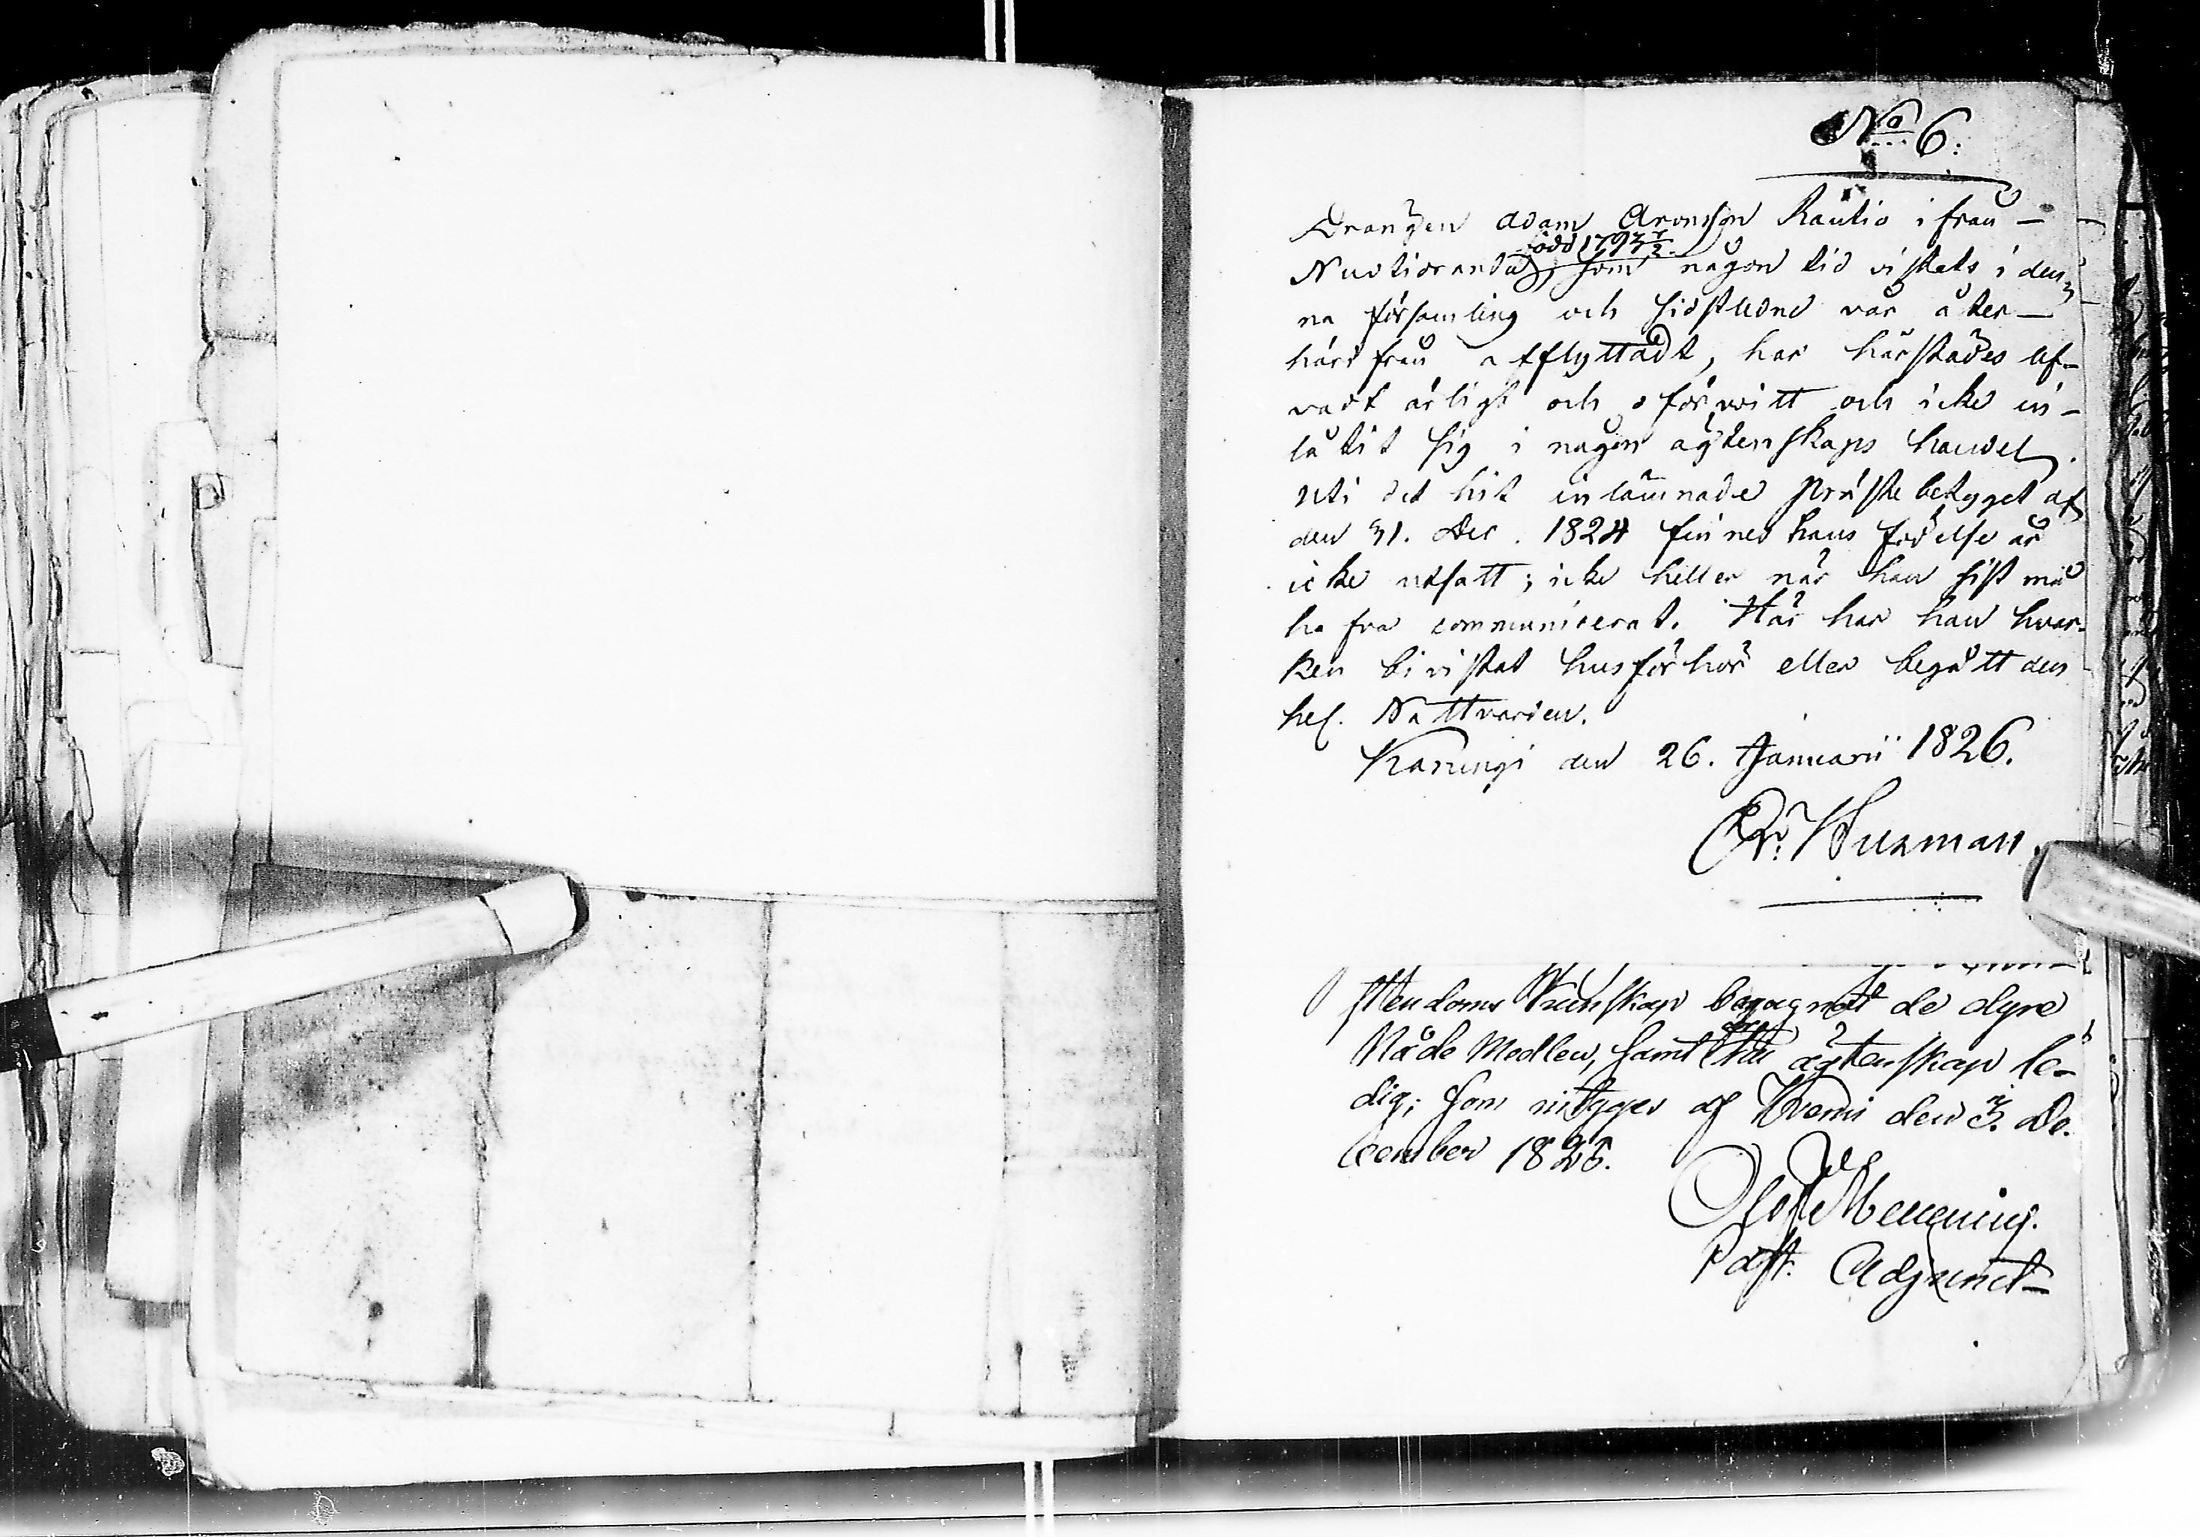 No 6.
Drängen Adam Aronsson Rautio ifrån
född 1793
Nuotioranda, som någon tid vistats i den-
na församling och sidstledne vår åter
härifrån afflyttadt, har härstädes lef-
vadt ärligt och oförvitt och icke in-
låtit sig i någon ägtenskaps handel.
Uti det hit inlämnade Prästebetyget af
den 31. Dec. 1824 finnes hans födelse år
icke utsatt; icke heller när han sist må
hafva communicerat. Här har han hvar-
ken bivistat husförhör eller begått den
hel. Nattvarden.
Karungi den 26. Januarii 1826.
Er: Huzman.
stendoms Kunskap begagnat de dyre
Nåde Medlen, samt till ägtenskap le-
dig; som intygges af Kemi den 3. De-
cember 1825.
Olof Menning.
Past. Adjunct